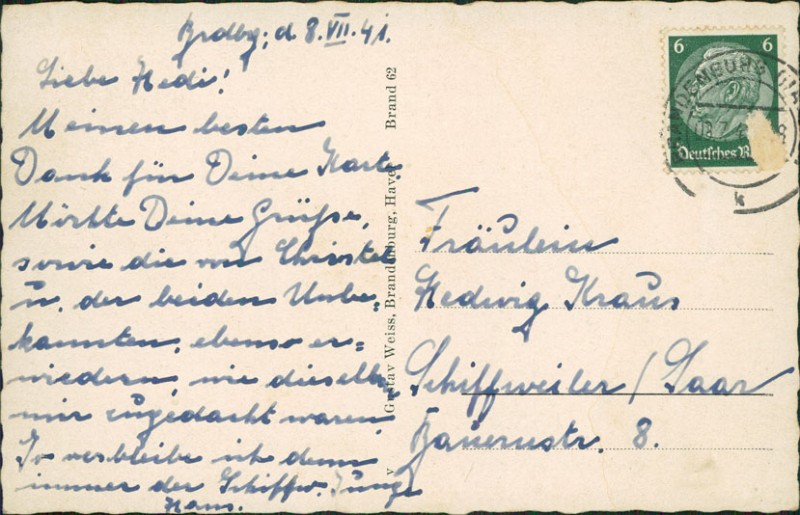 Brdbg; d 8.VII.41.
Liebe Hedi!
Meinen besten
Dank für Deine Karte.
Möchte Deine Grüße,
sowie die von Christel
u. der beiden Unbe-
kannten, ebenso er=
wiedern, wie dieselben
mir zugedacht waren.
So verbleibe ich denn
immer der Schiffw. Junge
Hans.
Gustav Weiss, Brandenburg, Havel Brand 62
6 6
Deutsches R
BRANDENBURG (HA
k
Fräulein
Hedwig Kraus
Schiffweiler / Saar
Bauernstr. 8.